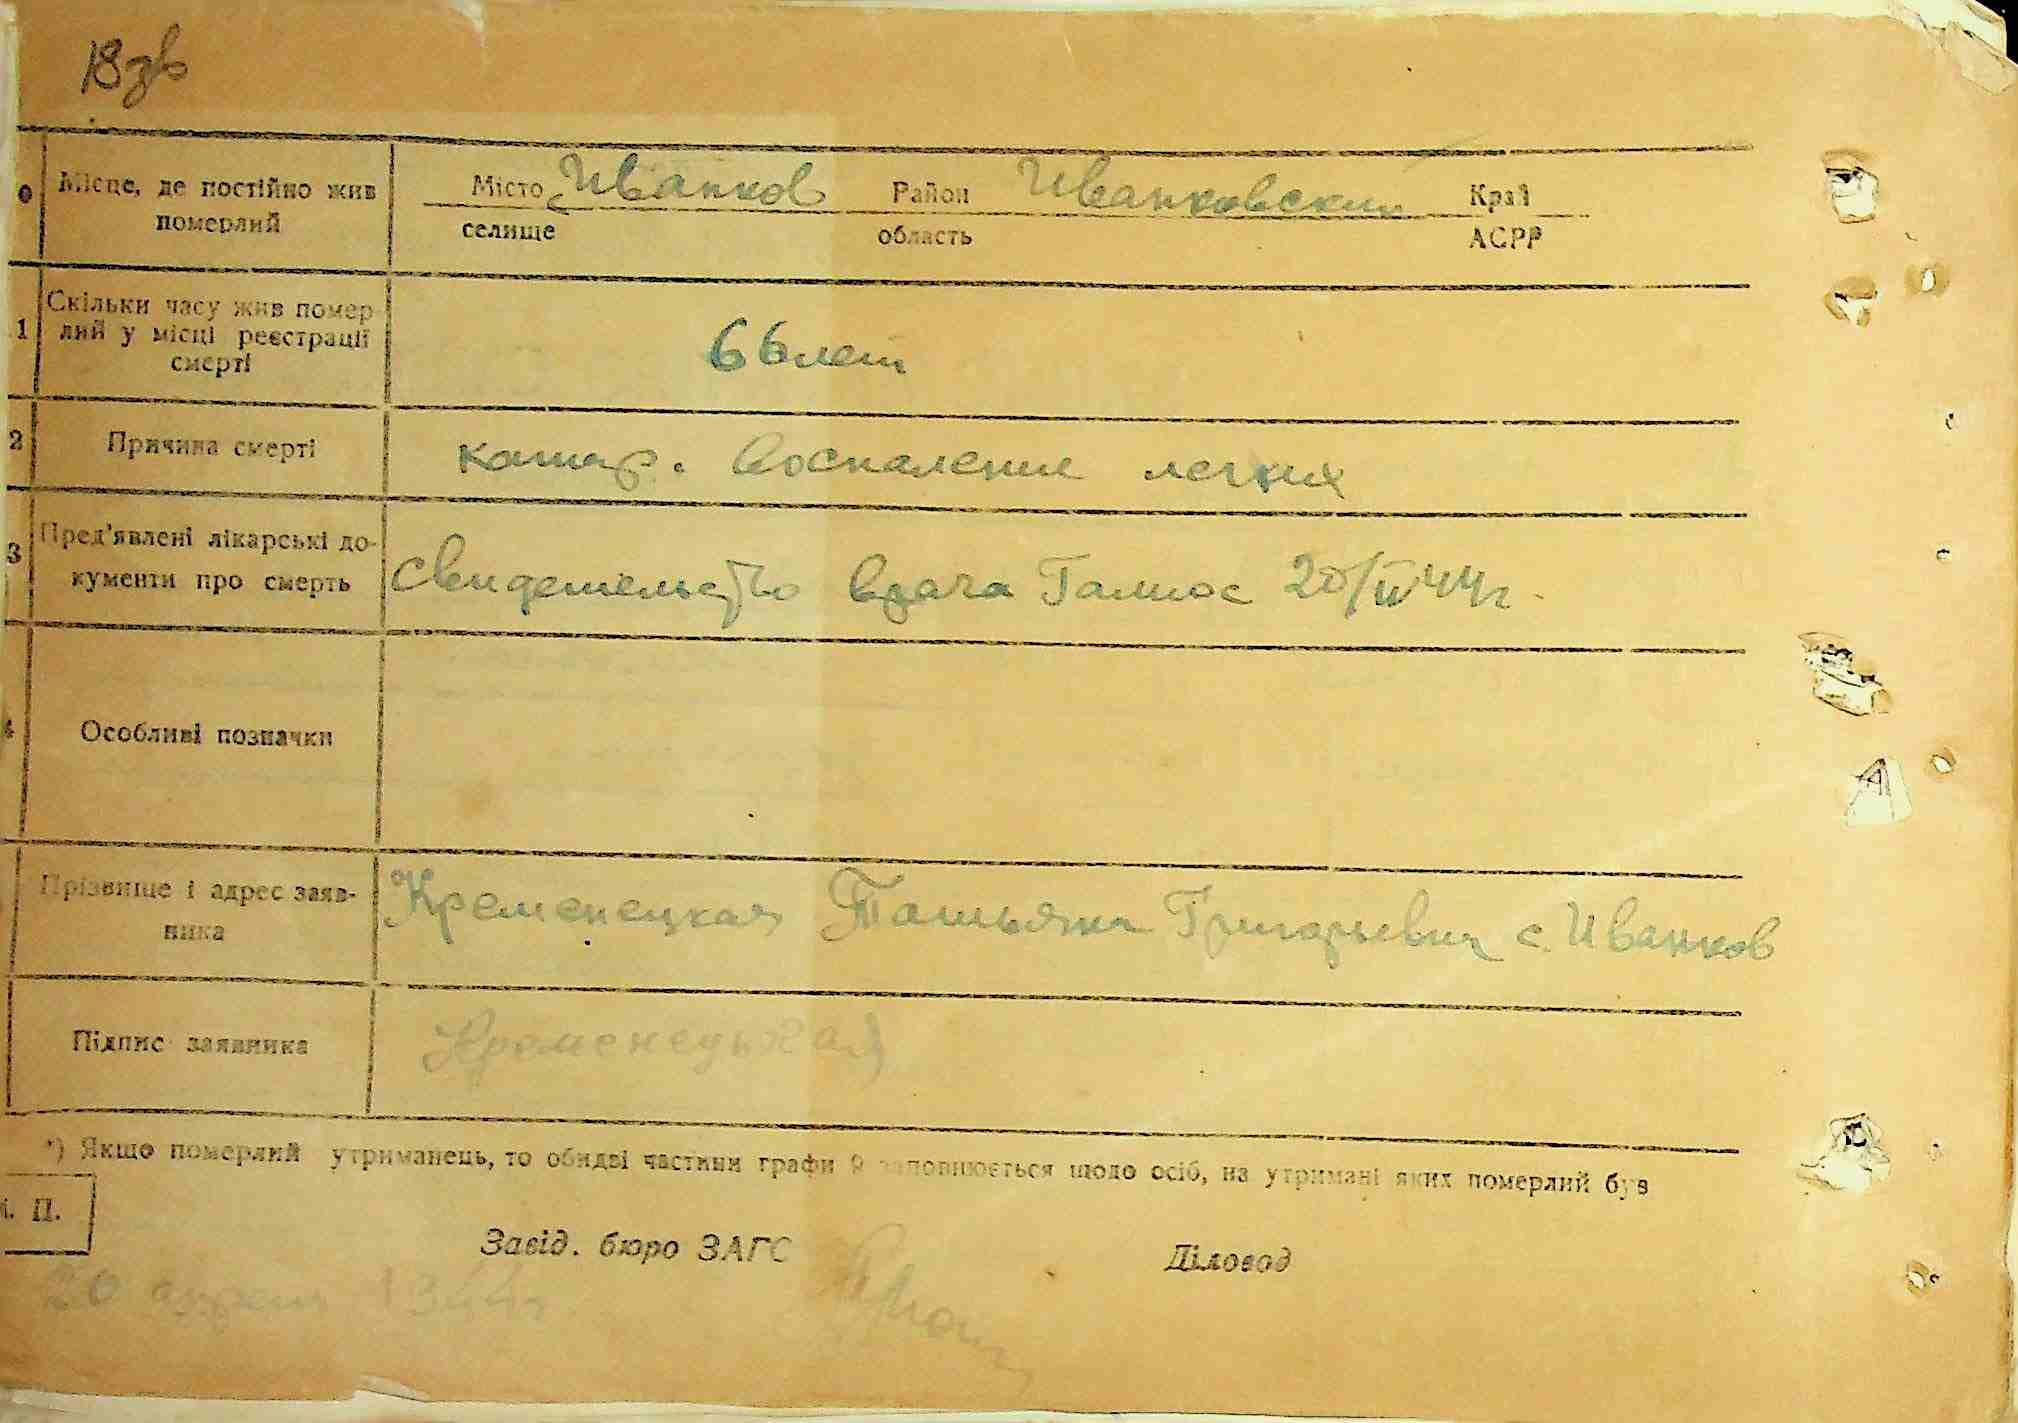 18 зв
Місце, де постійно жив
померлий
Місто Иванков Район Иванковский Край
селище область АСРР
1 Скільки часу жив помер-
лий у місці реєстрації
смерті
66 лет
2 Причина смерті
катар. воспаление легких
3 Пред'явлені лікарські до-
кументи про смерть
Свидетельство врача 20/IV 44 г.
4 Особливі позначки
Прізвище і адрес заяв-
ника
Кременецкая Татьяна Григорьевна с. Иванков
Підпис заявника
Кременецькая
*) Якщо померлий утриманець, то обидві частини графи 9 заповнюється щодо осіб, на утримані яких померлий був
М. П.
Завід. бюро ЗАГС Діловод
20 апреля 1944 г